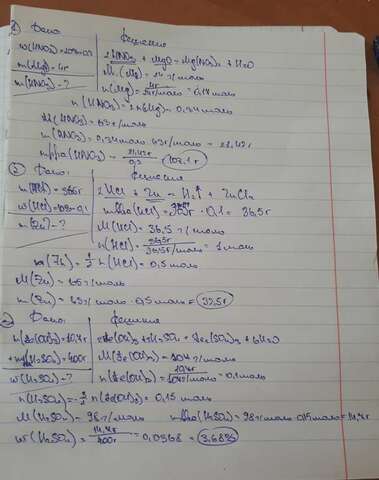 ① Дано: Решение
w(HNO₃)=20%=0,2 2HNO₃ + MgO = Mg(NO₃)₂ + H₂O
m(Mg)=4г M(Mg)=24 г/моль
m(HNO₃)-? n(Mg)= 4г/24г/моль = 0,17 моль
n(HNO₃)=2n(Mg)=0,34 моль
M(HNO₃)=63 г/моль
m(HNO₃)=0,34 моль·63 г/моль = 21,42 г
mрра(HNO₃)= 21,42г/0,2 = 107,1 г
② Дано: Решение
m(HCl)=365г 2HCl + Zn = H₂↑ + ZnCl₂
w(HCl)=10%=0,1 (HCl)= 365г · 0,1 = 36,5г
m(Zn)-? M(HCl)=36,5 г/моль
n(HCl)= 36,5г/36,5г/моль = 1 моль
n(Zn)=½ n(HCl)=0,5 моль
M(Zn)=65 г/моль
m(Zn)=65 г/моль · 0,5 моль = 32,5г
Дано: Решение
+ 3H₂SO₄ = Fe₂(SO₄)₃ + 6H₂O
m(H₂SO₄)=400г M(Fe(OH)₃)=104 г/моль
w(H₂SO₄)-? n(Fe(OH)₃)= = 0,1 моль
n(Fe(OH)₃)=0,15 моль
M(H₂SO₄)=98 г/моль (H₂SO₄)=98 г/моль · 0,15 моль = 14,7г
w(H₂SO₄)= 14,7г/400г = 0,0368 = 3,68%